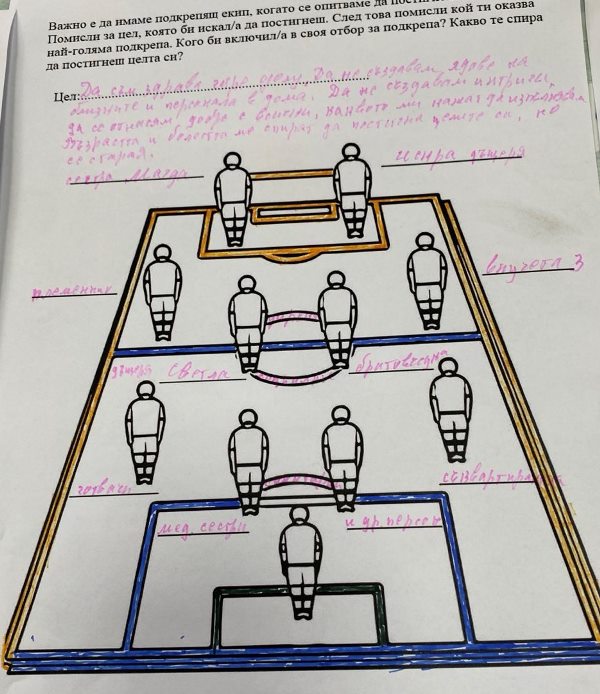 Важно е да имаме подкрепящ екип, когато се опитваме да
Помисли за цел, която би искал/а да постигнеш. След това помисли кой ти оказва
най-голяма подкрепа. Кого би включил/а в своя отбор за подкрепа? Какво те спира
да постигнеш целта си?
Цел: Да съм здрава Да не създавам ядове на
близките и персонала в дома. Да не създавам интриги,
да се отнасям добре с всички, каквото ми кажат да изпълнявам
Възрастта и болестта ме спират да постигна целите си, но
се старая.
сестра Магда
Искра дъщеря
племенник
внучета 3
дъщеря Светла
братовчедка
готвачи
съквартирантка
мед. сестри
и др. персон